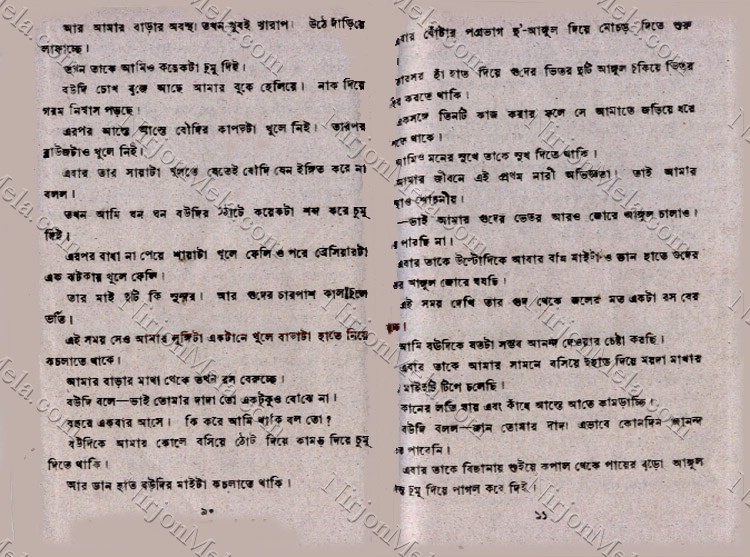 আর আমার বাড়ার অবস্থা তখন খুবই খারাপ। উঠে দাঁড়িয়ে
লাফাচ্ছে।
তখন তাকে আমিও কয়েকটা চুমু দিই।
বউদি চোখ বুজে আছে আমার বুকে হেলিয়ে। নাক দিয়ে
গরম নিশ্বাস পড়ছে।
এরপর আস্তে আস্তে বৌদির কাপড়টা খুলে নিই। তারপর
ব্লাউজটাও খুলে নিই।
এবার তার সায়াটা খুলতে যেতেই বৌদি যেন ইঙ্গিত করে না
বলল।
তখন আমি ঘন ঘন বউদির ঠোঁটে কয়েকটা শব্দ করে চুমু
দিই।
এরপর বাধা না পেয়ে শায়াটা খুলে ফেলি ও পরে ব্রেসিয়ারটা
এক ঝটকায় খুলে ফেলি।
তার মাই দুটি কি সুন্দর। আর গুদের চারপাশ কালচুলে
ভর্তি।
এই সময় সেও আমার লুঙ্গিটা একটানে খুলে বাড়াটা হাতে নিয়ে
কচলাতে থাকে।
আমার বাড়ার মাথা থেকে তখন রস বেরুচ্ছে।
বউদি বলে—ভাই তোমার দাদা তো একটুকুও বোঝে না।
বছরে একবার আসে। কি করে আমি থাকি বল তো?
বউদিকে আমার কোলে বসিয়ে ঠোঁট দিয়ে কামড় দিয়ে চুমু
দিতে থাকি।
আর ডান হাত বউদির মাইটা কচলাতে থাকি।
১০
এবার বোঁটার পগ্রভাগ দু'-আঙ্গুল দিয়ে মোচড় দিতে শুরু
তারপর বাঁ হাত দিয়ে গুদের ভিতর দুটি আঙ্গুল ঢুকিয়ে ভিতর
করতে থাকি।
একসঙ্গে তিনটি কাজ করার ফলে সে আমাতে জড়িয়ে ধরে
থাকে।
আমিও মনের সুখে তাকে সুখ দিতে থাকি।
আমার জীবনে এই প্রথম নারী অভিজ্ঞতা। তাই আমার
—ভাই আমার গুদের ভেতর আরও জোরে আঙ্গুল চালাও।
পারছি না।
এবার তাকে উল্টোদিকে আবার বাম মাইটা ও ডান হাতে গুদের
আঙ্গুল জোরে ঘষছি।
এই সময় দেখি তার গুদ থেকে জলের মত একটা রস বের
আমি বউদিকে যতটা সম্ভব আনন্দ দেওয়ার চেষ্টা করছি।
এবার তাকে আমার সামনে বসিয়ে দুহাত দিয়ে ময়দা মাখার
মাইদুটি টিপে চলেছি।
কানের লতি ঘাড় এবং কাঁধে আস্তে আস্তে কামড়াচ্ছি।
বউদি বলল—জান তোমার দাদা এভাবে কোনদিন আনন্দ
পারেনি।
এবার তাকে বিছানায় শুইয়ে কপাল থেকে পায়ের বুড়ো আঙ্গুল
চুমু দিয়ে পাগল করে দিই।
১১
NirjonMela.com